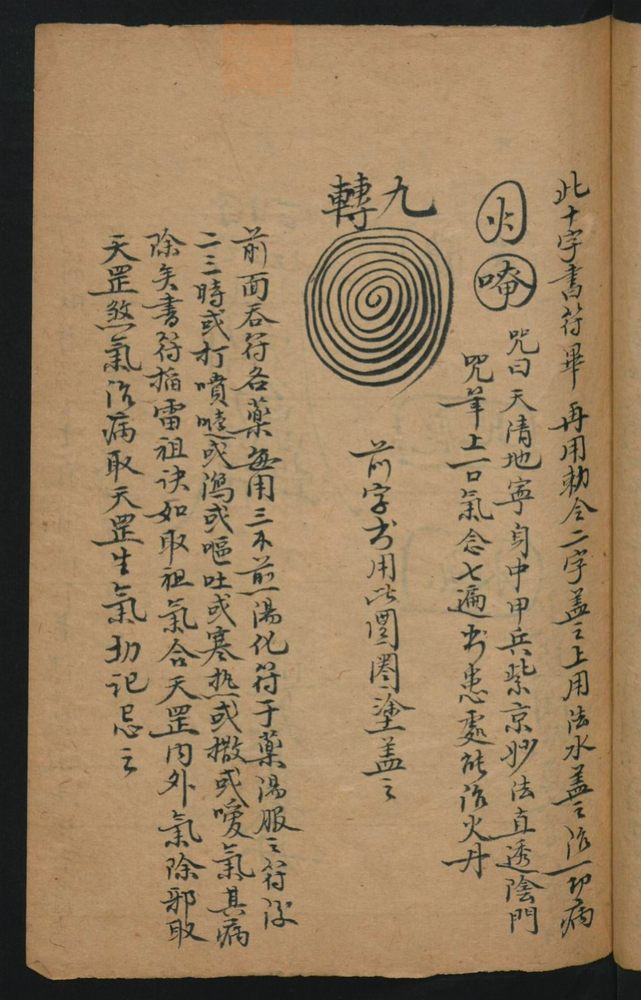 此十字書符畢再用勅令二字蓋之上用法水蓋之治一切病
火
唵
咒曰天清地寧身中甲兵紫京妙法直透陰門
咒筆上一口氣念七遍書患處能治火丹
九轉
前字書用此圈圈塗蓋之
前面吞符各藥每用三不煎湯化符于藥湯服之符後
二三時或打噴嚏或瀉或嘔吐或寒热或撒或噯氣其病
除矣書符掐雷祖訣如取祖氣合天罡内外氣除邪取
天罡煞氣治病取天罡生氣切記忌之